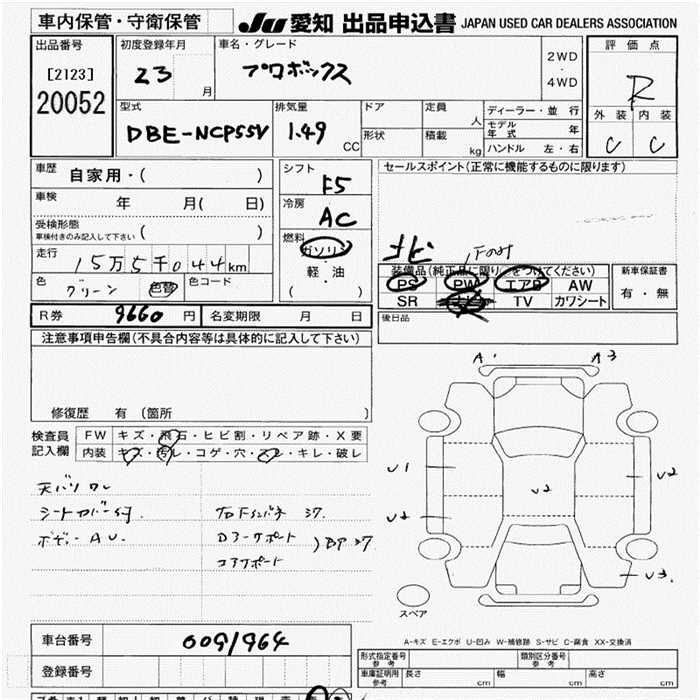 車内保管・守衛保管
JU 愛知 出品申込書 JAPAN USED CAR DEALERS ASSOCIATION
出品番号
[2123]
20052
初度登録年月
23
月
車名・グレード
プロボックス
2WD
・
4WD
評価点
R
外装 内装
C C
型式
DBE-NCP55V
排気量
1.49
CC
ドア
形状
定員
人
積載
kg
ディーラー・並行
モデル年式 年
ハンドル 左・右
車歴
自家用・( )
車検
年 月( 日)
受検形態
車検付きのみ記入して下さい ( )
走行
15万5千044km
色
グリーン
色替
色コード
シフト
F5
冷房
AC
燃料
ガソリン
・
軽・油
( )
セールスポイント(正常に機能するものに限ります)
ナビ
装備品(純正品に限り○をつけてください)
PS PW エアB AW
SR TV カワシート
新車保証書
有・無
後日品
R券 9660 円
名変期限 月 日
注意事項申告欄(不具合内容等は具体的に記入して下さい)
修復歴 有(箇所 )
検査員記入欄
FW キズ・飛石・ヒビ割・リペア跡・X要
内装 キズ・汚レ・コゲ・穴・スレ・キレ・破レ
天バリ ワレ
シートカバー付
ボデー AU
37
コアサポート
BP 37
A1 A3
U1
U2
U2
U2
U3
スペア
A-キズ E-エクボ U-凹み W-補修跡 S-サビ C-腐食 XX-交換済
車台番号
0091964
登録番号
形式指定番号
参考
類別区分番号
参考
車庫証明用
参考
長さ cm 幅 cm 高さ cm